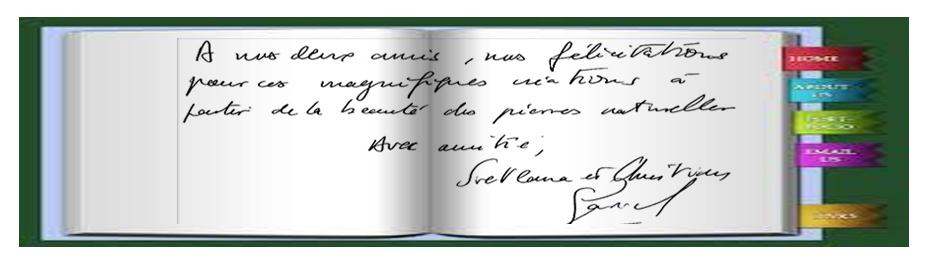 A nos deux amis, nos félicitations
pour ces magnifiques créations à
partir de la beauté des pierres naturelles
Avec amitié,
Svetlana et Christian
HOME
ABOUT US
PORT-FOLIO
EMAIL US
LINKS